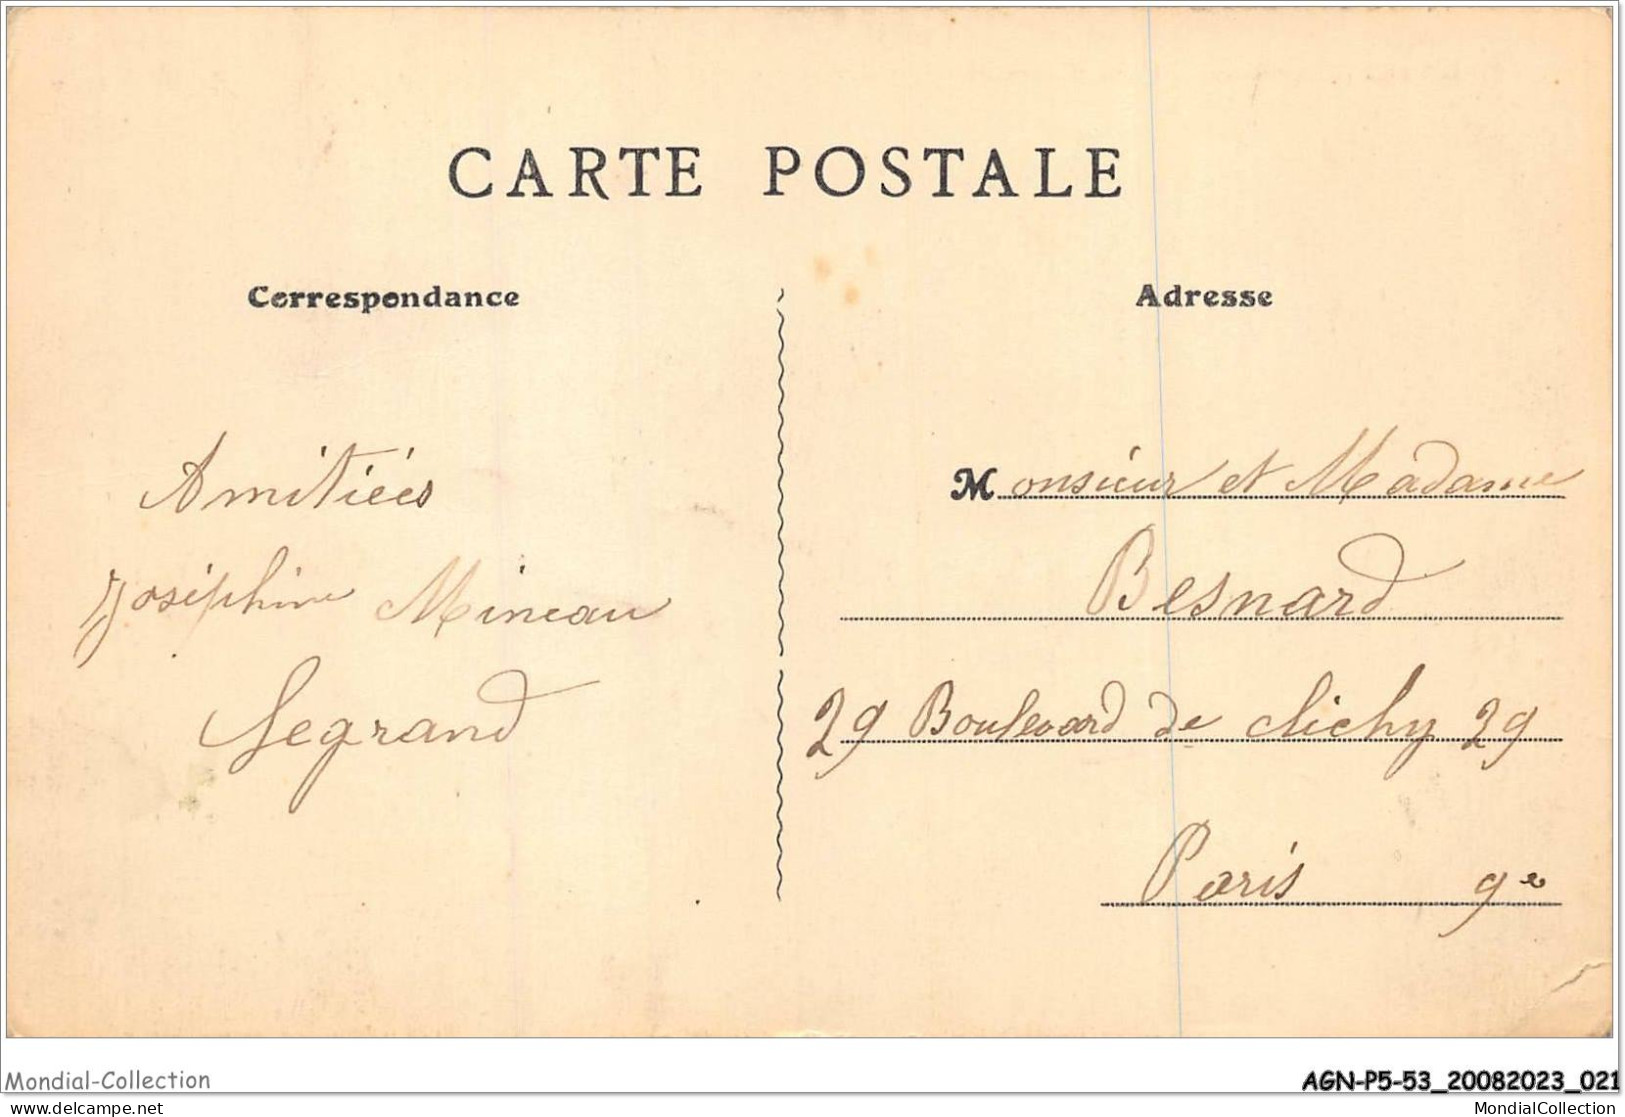 CARTE POSTALE
Correspondance
Adresse
Amitiées
Joséphine Mineau
Legrand
Monsieur et Madame
Besnard
29 Boulevard de clichy 29
Paris 9e
Mondial-Collection
AGN-P5-53_20082023_021
delcampe.net
MondialCollection